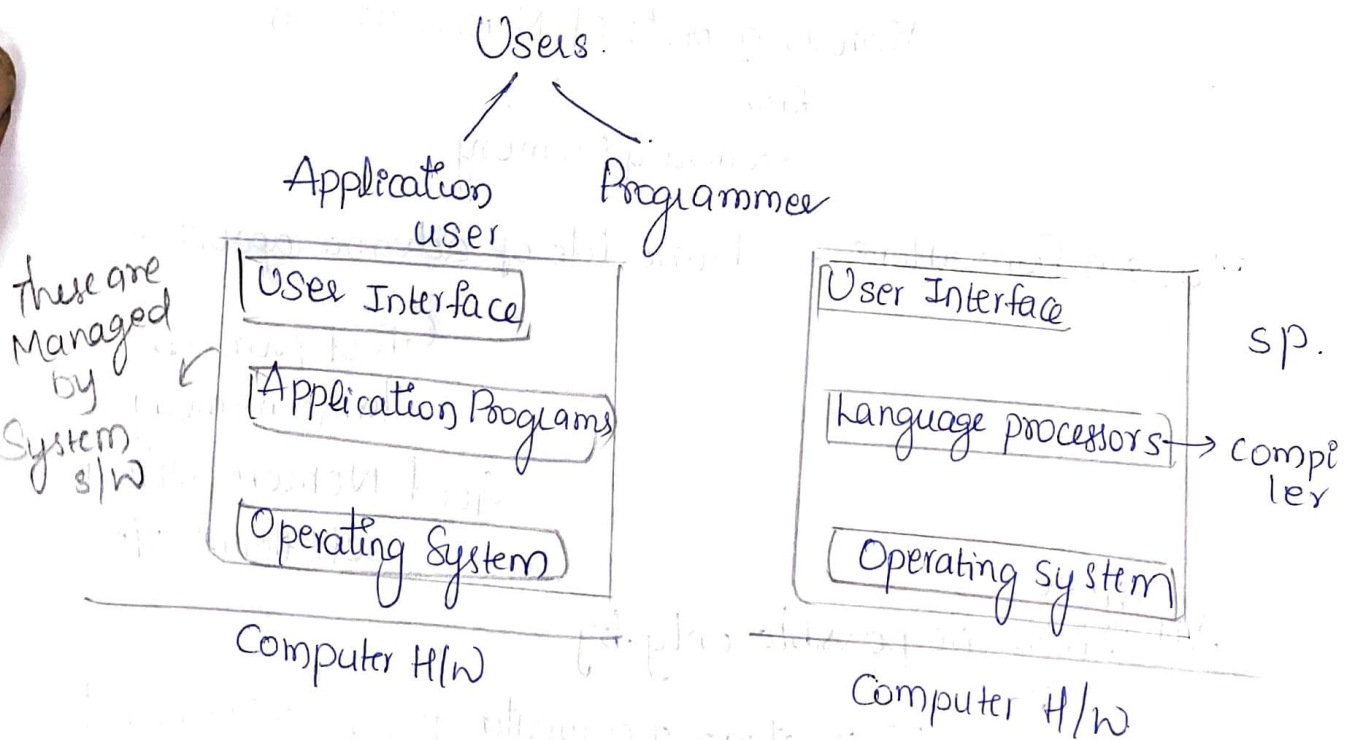 Users.
Application
user
Programmer
These are
Managed
by
System
S/W
User Interface
Application Programs
Operating System
Computer H/W
User Interface
Language processors → compi
ler
Operating system
SP.
Computer H/W